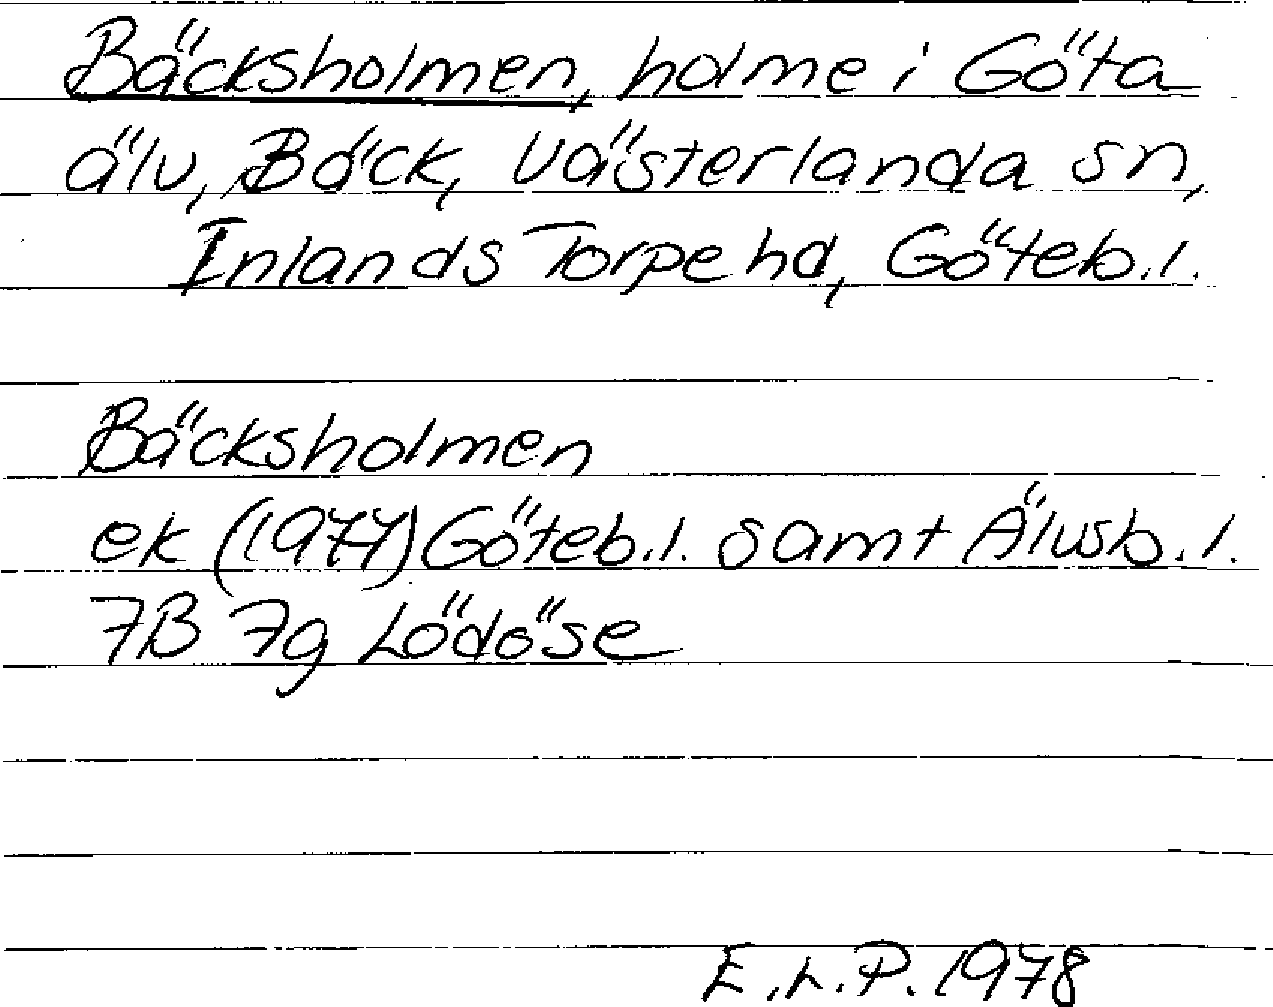 Bäcksholmen, holme i Göta
älv, Bäck, Västerlanda sn,
Inlands Torpe hd, Göteb.l.
Bäcksholmen
ek (1977) Göteb.l. samt Älvsb.l.
7B 7g Lödöse
E.L.P. 1978